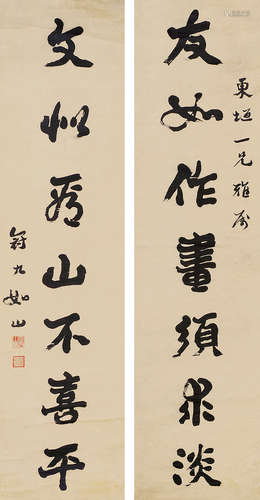 東垣一兄雅属
友如作畫須求淡
文似看山不喜平
冠九如山